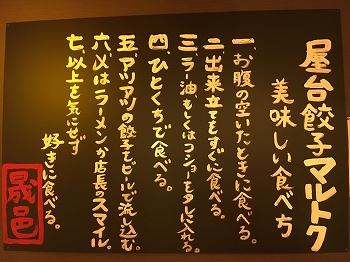 屋台餃子マルトク
美味しい食べ方
一、お腹の空いたときに食べる。
二、出来立てをすぐに食べる。
三、ラー油もしくはコショーをタレに入れる。
四、ひとくちで食べる。
五、アツアツの餃子をビールで流し込む。
六、〆はラーメンか店長のスマイル。
七、以上を気にせず
好きに食べる。
晟邑